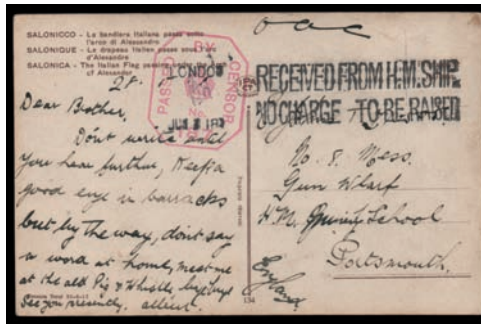 SALONICCO - La bandiera Italiana passa sotto
l'arco di Alessandro
SALONIQUE - Le drapeau Italien passe sous l'arc
d'Alexandre
SALONICA - The Italian Flag passing under the
of Alexander
PASSED BY CENSOR
LONDON
JUN
OAC
RECEIVED FROM H.M. SHIP.
NO CHARGE TO BE RAISED
Dear Brother,
Don't write until
you hear further, Keep a
good eye in barracks
but, by the way, don't say
a word at home, meet me
at the old Pig & Whistle
See you presently.
No. 8. Mess.
Gun Wharf
H.M. School
Portsmouth.
England
134